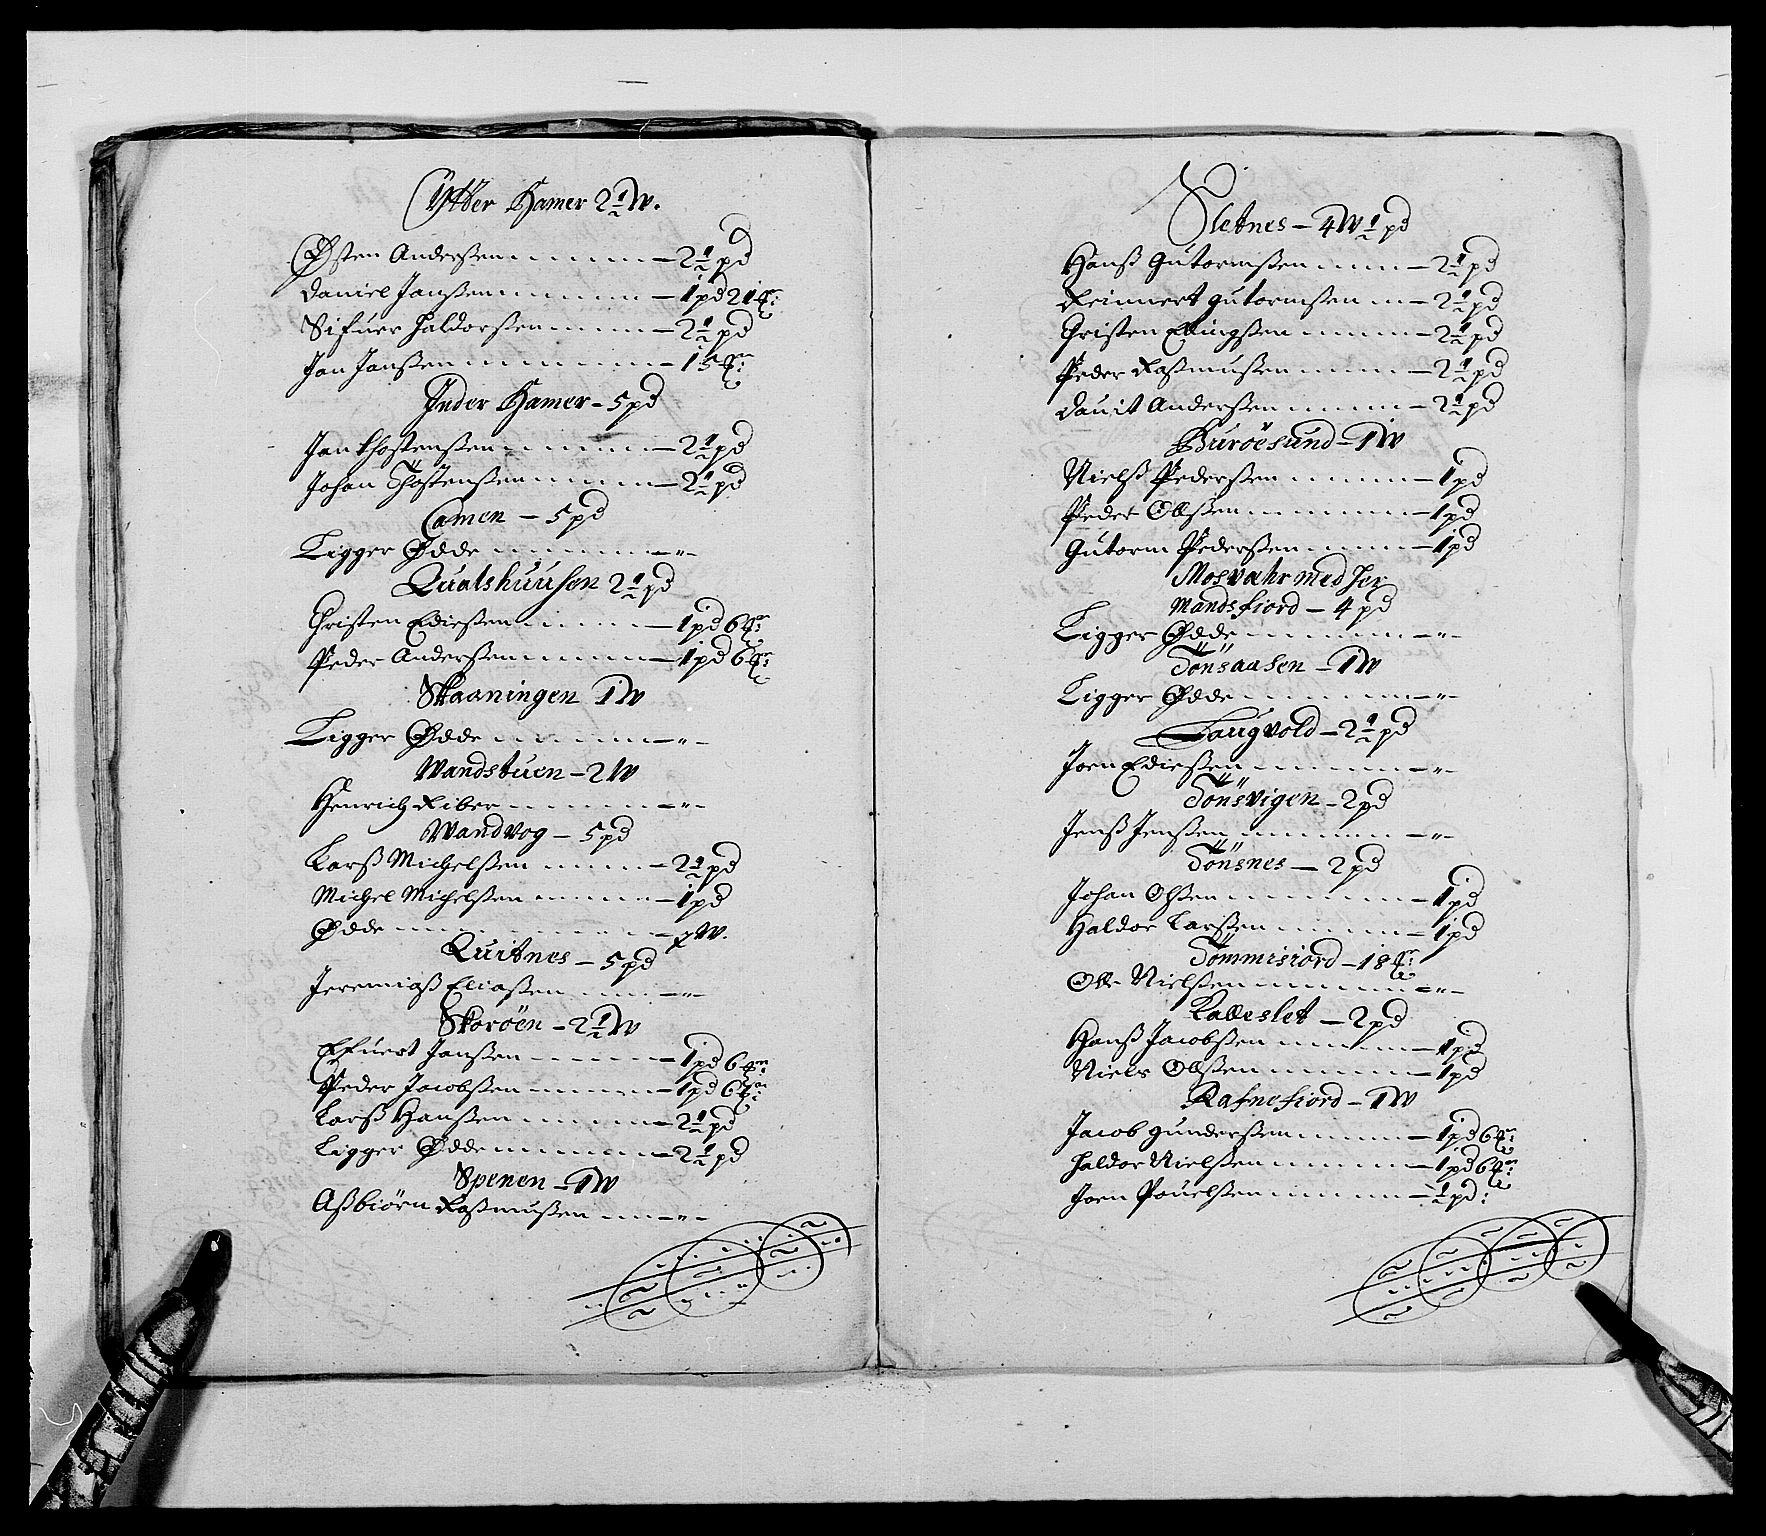 Ytter Hamer 2½ W.
Østen Anderßen - - - - - - 2½ pd
Daniel Janßen - - - - - - 1 pd 21 #:
Sifuer Haldorßen - - - - - 2½ pd
Jan Janßen - - - - - - - 15 #:
Inder Hamer - 5 pd
Jan Thostenßen - - - - - - 2½ pd
Johan Thostenßen - - - - - 2½ pd
Camen - 5 pd
Ligger Øde - - - - - - - " -
Qualshuusen 2½ pd
Christen Edießen - - - - - 1 pd 6 #:
Peder Anderßen - - - - - - 1 pd 6 #:
Skaaningen 1 W
Ligger Øde - - - - - - - " -
Wandstuen - 2 W
Henrich Riber - - - - - - " -
Wandvog - 5 pd
Larß Michelßen - - - - - 2½ pd
Michel Michelßen - - - - - 1 pd
Øde - - - - - - - - - W.
Quitnes - 5 pd
Jeremiaß Eliaßen - - - - " -
Skorøen - 2½ W
Efuert Janßen - - - - - - 1 pd 6 #:
Peder Jacobßen - - - - - - 1 pd 6 #:
Larß Hanßen - - - - - - 2½ pd
Ligger Øde - - - - - - - 2½ pd
Spenen - 1 W
Aßbiørn Raßmußen - - - " -
Sletnes - 4 W ½ pd
Hanß Gutormßen - - - - - 2½ pd
Reinnert Gutormßen - - - 2½ pd
Christen Ellingßen - - - - - 2½ pd
Peder Raßmußen - - - - - 2½ pd
Dauit Anderßen - - - - - - 2½ pd
Burøesund - 1 W
Nielß Pederßen - - - - - - 1 pd
Peder Olßen - - - - - - - 1 pd
Gutorm Pederßen - - - - - 1 pd
Mosvahr med Her
mandsfiord - 4 pd
Ligger Øde - - - - - - - " -
Tönsaasen - 1 W
Ligger Øde - - - - - - - " -
Laugvold - 2½ pd
Joen Edießen - - - - - - " -
Tönsvigen - 2 pd
Jenß Jenßen - - - - - - - " -
Tönsnes - 2 pd
Johan Olßen - - - - - - - 1 pd
Haldor Larßen - - - - - - 1 pd
Tömmisiord - 18 #:
Olle Nielßen - - - - - - - " -
Kalleslet - 2 pd
Hanß Jacobßen - - - - - - 1 pd
Niels Olßen - - - - - - - 1 pd
Rafnefiord - 1 W
Jacob Gunderßen - - - - - 1 pd 6 #:
Haldor Nielßen - - - - - - 1 pd 6 #:
Joen Pouelßen - - - - - - ½ pd: